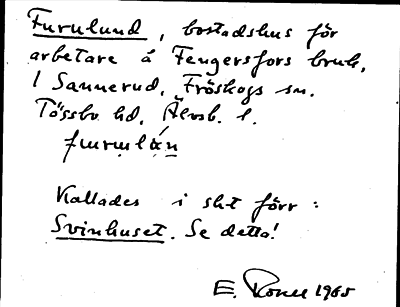 Furulund, bostadshus för
arbetare å Fengersfors bruk,
1 Sannerud, Fröskogs sn.
Tössbo hd, Älvsb. l.
furulán
Kallades i sht förr:
Svinhuset. Se detta!
E. 1965